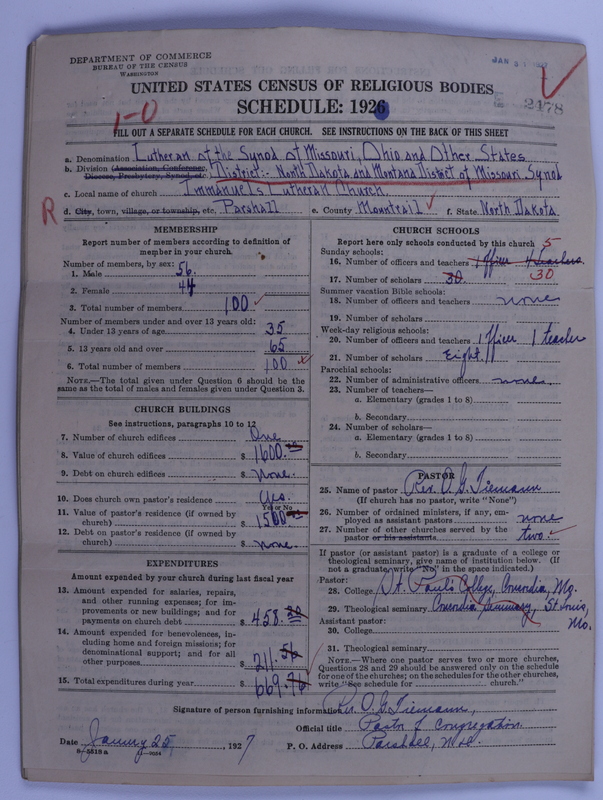 DEPARTMENT OF COMMERCE
BUREAU OF THE CENSUS
WASHINGTON
JAN 31 1927
UNITED STATES CENSUS OF RELIGIOUS BODIES
SCHEDULE: 1926
2478
1-0
FILL OUT A SEPARATE SCHEDULE FOR EACH CHURCH. SEE INSTRUCTIONS ON THE BACK OF THIS SHEET
a. Denomination Lutheran of the Synod of Missouri, Ohio and Other States
b. Division (Association, Conference, Diocese, Presbytery, Synod, etc. District:- North Dakota and Montana District of Missouri Synod
c. Local name of church Immanuels Lutheran Church
R d. City, town, village, or township, etc. Parshall e. County Mountrail f. State North Dakota
MEMBERSHIP
Report number of members according to definition of
member in your church.
Number of members, by sex:
1. Male 56.
2. Female 44
3. Total number of members 100
Number of members under and over 13 years old:
4. Under 13 years of age 35
5. 13 years old and over 65
6. Total number of members 100
NOTE.—The total given under Question 6 should be the
same as the total of males and females given under Question 3.
CHURCH BUILDINGS
See instructions, paragraphs 10 to 12
7. Number of church edifices One
8. Value of church edifices $ 1600.
9. Debt on church edifices $ None.
10. Does church own pastor's residence Yes.
Yes or No
11. Value of pastor's residence (if owned by
church) $ 1500
12. Debt on pastor's residence (if owned by
church) $ none.
EXPENDITURES
Amount expended by your church during last fiscal year
13. Amount expended for salaries, repairs,
and other running expenses; for im-
provements or new buildings; and for
payments on church debt $ 458.20
14. Amount expended for benevolences, in-
cluding home and foreign missions; for
denominational support; and for all
other purposes $ 211.56
15. Total expenditures during year $ 669.76
CHURCH SCHOOLS
Report here only schools conducted by this church
Sunday schools: 5
16. Number of officers and teachers 1 officer 4 teachers.
17. Number of scholars 30. 30
Summer vacation Bible schools:
18. Number of officers and teachers none
19. Number of scholars
Week-day religious schools:
20. Number of officers and teachers 1 officer 1 teacher
21. Number of scholars Eight.
Parochial schools:
22. Number of administrative officers none.
23. Number of teachers—
a. Elementary (grades 1 to 8)
b. Secondary
24. Number of scholars—
a. Elementary (grades 1 to 8)
b. Secondary
PASTOR
25. Name of pastor Rev. O. G. Tiemann
(If church has no pastor, write "None")
26. Number of ordained ministers, if any, em-
ployed as assistant pastors none
27. Number of other churches served by the
pastor or his assistants two.
If pastor (or assistant pastor) is a graduate of a college or
theological seminary, give name of institution below. (If
not a graduate, write "No" in the space indicated.)
Pastor:
28. College St. Paul's College, Concordia, Mo.
29. Theological seminary Concordia Seminary, St. Louis, Mo.
Assistant pastor:
30. College
31. Theological seminary
NOTE.—Where one pastor serves two or more churches,
Questions 28 and 29 should be answered only on the schedule
for one of the churches; on the schedules for the other churches,
write "See schedule for church."
Signature of person furnishing information Rev. O. G. Tiemann,
Official title Pastor of Congregation.
Date January 25, 1927 P. O. Address Parshall, N.D.
8—5518 a